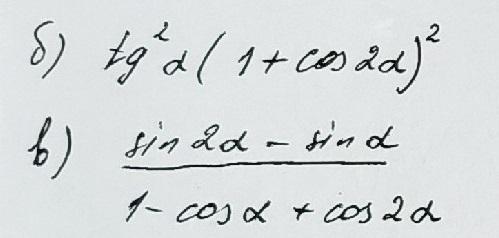 б) tg²α(1+cos2α)²
в) sin2α - sinα
1-cosα+cos2α